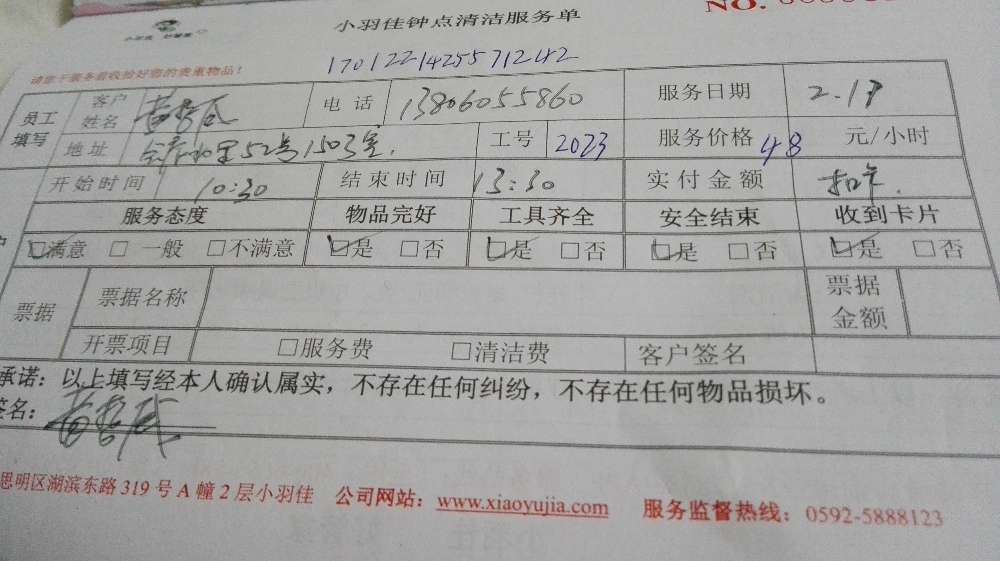 小羽佳钟点清洁服务单
NO.
1701221425571242
请您于服务前收拾好您的贵重物品！
员工填写 客户姓名 黄哲威 电话 13806055860 服务日期 2.17
地址 52号1503室. 工号 2023 服务价格 48 元/小时
开始时间 10:30 结束时间 13:30 实付金额 扣卡.
服务态度 物品完好 工具齐全 安全结束 收到卡片
☑满意 □一般 □不满意 ☑是 □否 ☑是 □否 ☑是 □否 ☑是 □否
票据 票据名称 票据金额
开票项目 □服务费 □清洁费 客户签名
承诺：以上填写经本人确认属实，不存在任何纠纷，不存在任何物品损坏。
签名：黄哲威
思明区湖滨东路 319 号 A 幢 2 层小羽佳 公司网站：www.xiaoyujia.com 服务监督热线：0592-5888123